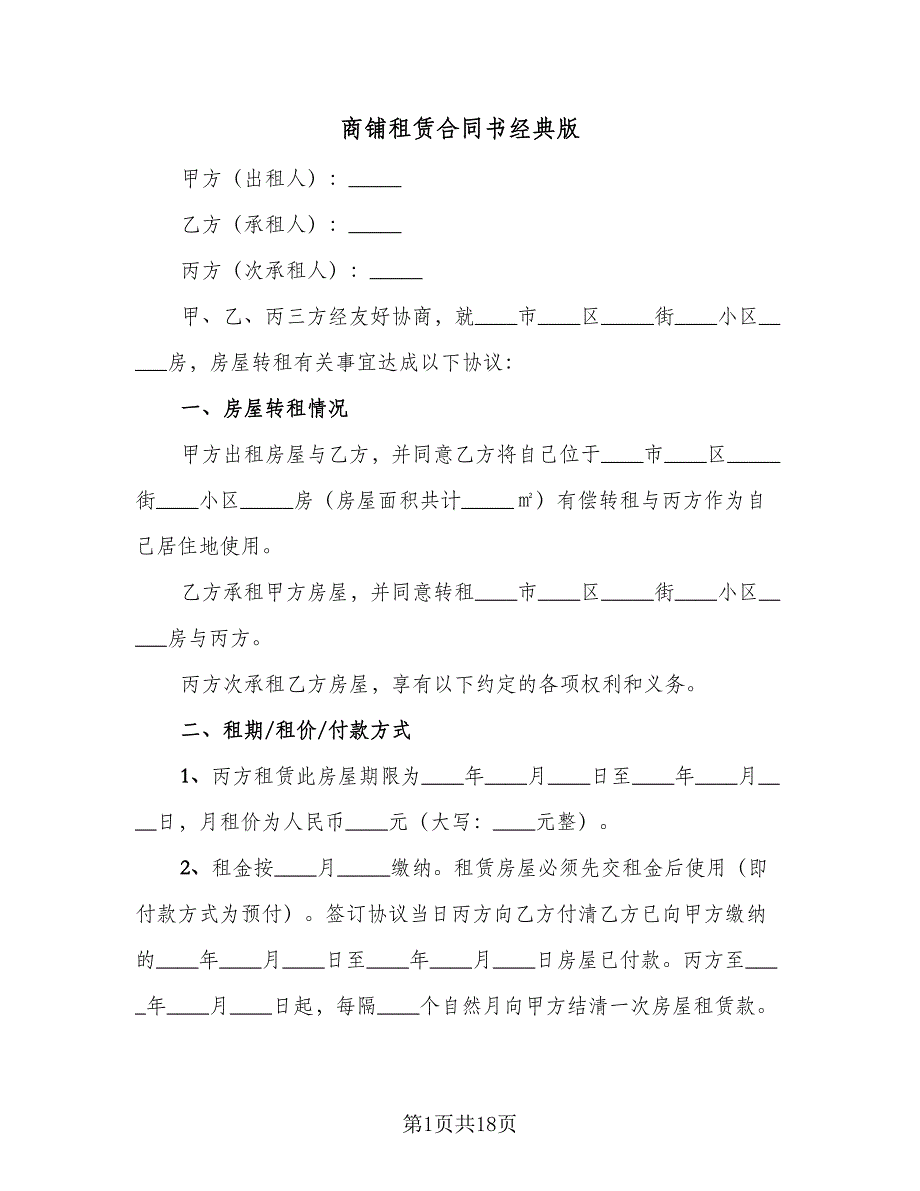 商铺租赁合同书经典版
甲方（出租人）：_____
乙方（承租人）：_____
丙方（次承租人）：_____
甲、乙、丙三方经友好协商，就____市____区_____街____小区__
___房，房屋转租有关事宜达成以下协议：
一、房屋转租情况
甲方出租房屋与乙方，并同意乙方将自己位于____市____区_____
街____小区_____房（房屋面积共计_____㎡）有偿转租与丙方作为自
己居住地使用。
乙方承租甲方房屋，并同意转租____市____区_____街____小区__
___房与丙方。
丙方次承租乙方房屋，享有以下约定的各项权利和义务。
二、租期/租价/付款方式
1、丙方租赁此房屋期限为____年____月____日至____年____月__
__日，月租价为人民币____元（大写：____元整）。
2、租金按____月_____缴纳。租赁房屋必须先交租金后使用（即
付款方式为预付）。签订协议当日丙方向乙方付清乙方已向甲方缴纳
的____年____月____日至____年____月____日房屋已付款。丙方至___
_年____月____日起，每隔____个自然月向甲方结清一次房屋租赁款。
第1页共18页